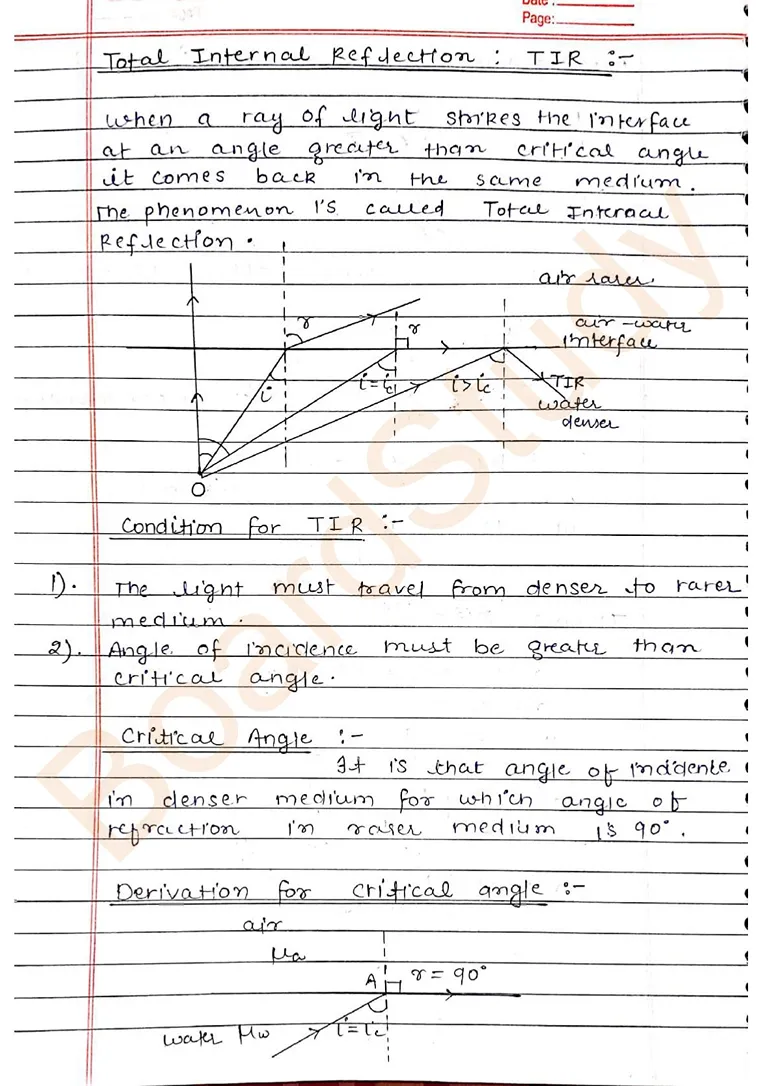 Date :
Page:
Total Internal Reflection : TIR :-
When a ray of light strikes the interface
at an angle greater than critical angle
it comes back in the same medium.
The phenomenon is called Total Internal
Reflection.
air rarer.
r
r
air-water
interface
i
i = ic
i > ic
TIR
water
denser
O
Condition for TIR :-
1). The light must travel from denser to rarer
medium.
2). Angle of incidence must be greater than
critical angle.
Critical Angle :-
It is that angle of incidence
in denser medium for which angle of
refraction in rarer medium is 90°.
Derivation for critical angle :-
air
μa
A r = 90°
water μw i = ic
BoardStudy